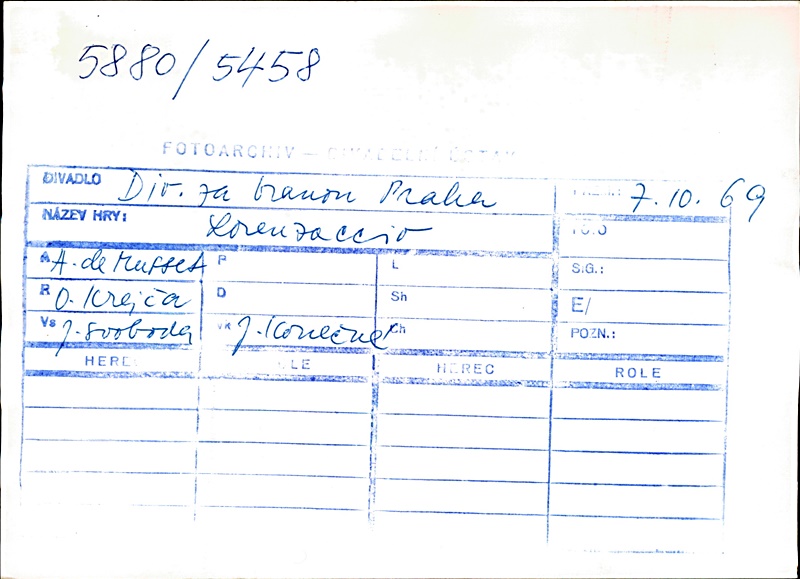 5880/5458
FOTOARCHIV – DIVADELNÍ ÚSTAV
DIVADLO Div. za branou Praha 7. 10. 69
NÁZEV HRY: Lorenzaccio
A A. de Musset P L S.G.:
R O. Krejča D Sh E/
Vs J. Svoboda VK J. Konečná Ch POZN.:
HEREC ROLE HEREC ROLE